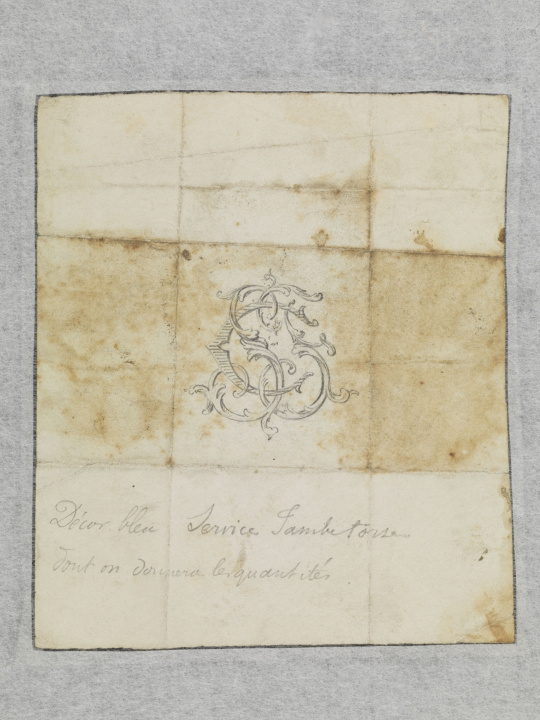 Décor bleu Service Jambe torse
dont on donnera les quantités